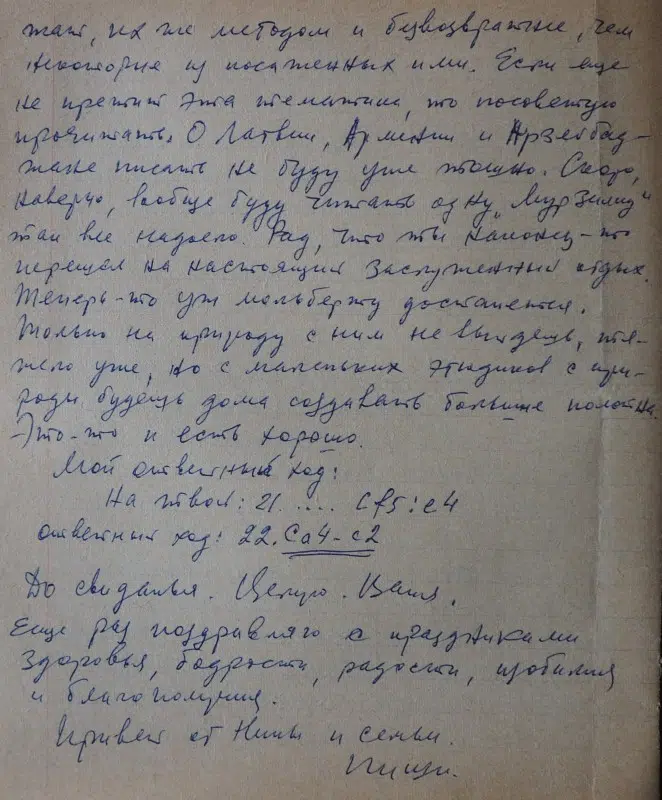 жат, их же методом и безвозвратнее, чем
некоторые из посаженных ими. Если еще
не претит эта тематика, то посоветую
прочитать. О Латвии, Армении и Азербад-
жане писать не буду уже тошно. Скоро,
наверно, вообще буду читать одну „Мурзилку"
так все надоело. Рад, что ты наконец-то
перешел на настоящий заслуженный отдых.
Теперь-то уж мольберту достанется.
Только на природу с ним не выйдешь, тя-
жело уже, но с маленьких этюдиков с при-
роды будешь дома создавать большие полотна.
Это-то и есть хорошо.
Мой ответный ход:
На твой: 21. .... Cf5:e4
ответный ход: 22. Ca4-c2
До свиданья. Целую. Ваня.
Еще раз поздравляю с праздниками
Здоровья, бодрости, радости, изобилия
и благополучия.
Привет от Нины и семьи.
Пиши.